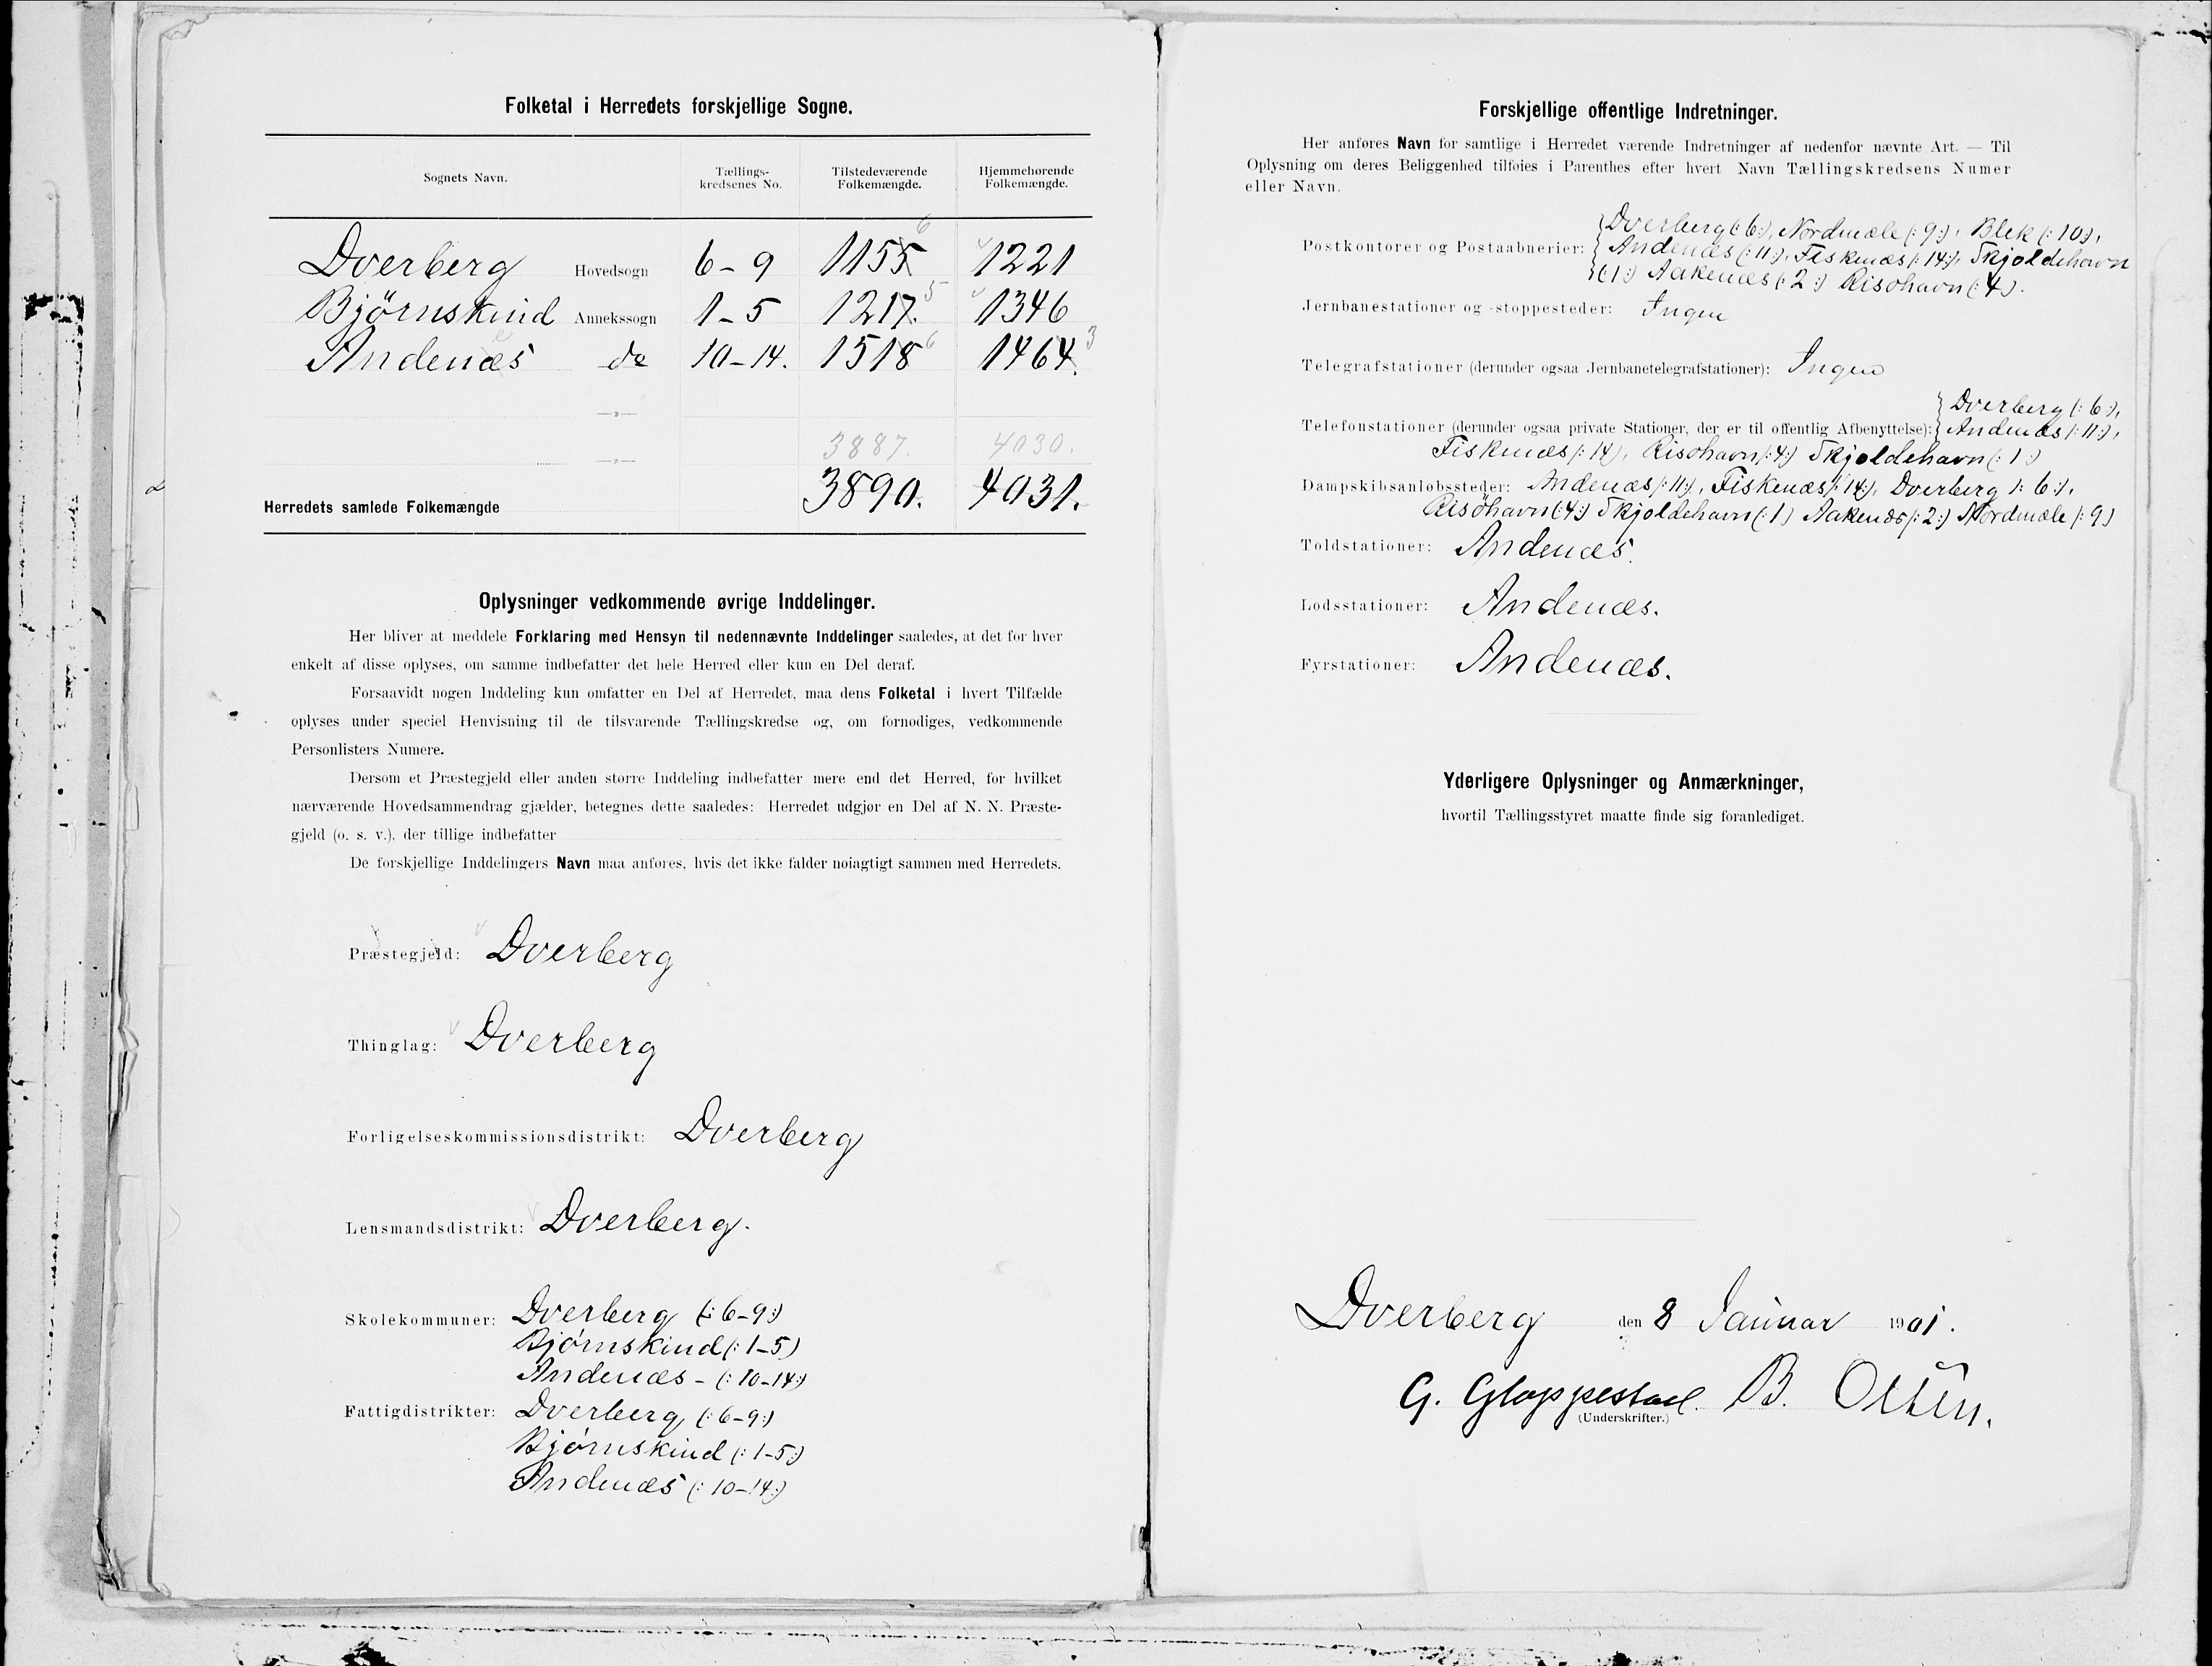 Folketal i Herredets forskjellige Sogne.
Sognets Navn. Tællings-kredsenes No. Tilstedeværende Folkemængde. Hjemmehørende Folkemængde.
Dverberg Hovedsogn 6-9 1155 6 1221
Bjørnskind Annekssogn 1-5 1217. 5 1346
Andenæs do 10-14. 1518 6 1464. 3
—»—
3887. 4030.
—»—
Herredets samlede Folkemængde 3890. 4031.
Oplysninger vedkommende øvrige Inddelinger.
Her bliver at meddele Forklaring med Hensyn til nedennævnte Inddelinger saaledes, at det for hver
enkelt af disse oplyses, om samme indbefatter det hele Herred eller kun en Del deraf.
Forsaavidt nogen Inddeling kun omfatter en Del af Herredet, maa dens Folketal i hvert Tilfælde
oplyses under speciel Henvisning til de tilsvarende Tællingskredse og, om fornødiges, vedkommende
Personlisters Numere.
Dersom et Præstegjeld eller anden større Inddeling indbefatter mere end det Herred, for hvilket
nærværende Hovedsammendrag gjælder, betegnes dette saaledes: Herredet udgjør en Del af N. N. Præste-
gjeld (o. s. v.), der tillige indbefatter
De forskjellige Inddelingers Navn maa anføres, hvis det ikke falder nøiagtigt sammen med Herredets.
Præstegjeld: Dverberg
Thinglag: Dverberg
Forligelseskommissionsdistrikt: Dverberg
Lensmandsdistrikt: Dverberg.
Skolekommuner: Dverberg (: 6-9:)
Bjørnskind (: 1-5)
Andenæs - (: 10-14:)
Fattigdistrikter: Dverberg (: 6-9:)
Bjørnskind (: 1-5:)
Andenæs (: 10-14:)
Forskjellige offentlige Indretninger.
Her anføres Navn for samtlige i Herredet værende Indretninger af nedenfor nævnte Art. — Til
Oplysning om deres Beliggenhed tilføies i Parenthes efter hvert Navn Tællingskredsens Numer
eller Navn.
Dverberg (: 6:), Nordmele (: 9:), Blek (: 10:),
Postkontorer og Postaabnerier: Andenæs (: 11:), Fiskenæs (: 14:), Skjoldehavn
(: 1:) Aakenæs (: 2:) Risøhavn (: 4:).
Jernbanestationer og -stoppesteder: Ingen
Telegrafstationer (derunder ogsaa Jernbanetelegrafstationer): Ingen
Dverberg (: 6:),
Telefonstationer (derunder ogsaa private Stationer, der er til offentlig Afbenyttelse): Andenæs (: 11:),
Fiskenæs (: 14), Risøhavn (: 4:) Skjoldehavn (: 1:)
Dampskibsanløbssteder: Andenæs (: 11:), Fiskenæs (: 14:), Dverberg (: 6:),
Risöhavn (: 4:) Skjoldehavn (: 1) Aakenæs (: 2:) Nordmele (: 9)
Toldstationer: Andenæs.
Lodsstationer: Andenæs.
Fyrstationer: Andenæs.
Yderligere Oplysninger og Anmærkninger,
hvortil Tællingsstyret maatte finde sig foranlediget.
Dverberg den 8 Januar 1901.
G. Gloppestad. B. Olsen.
(Underskrifter.)